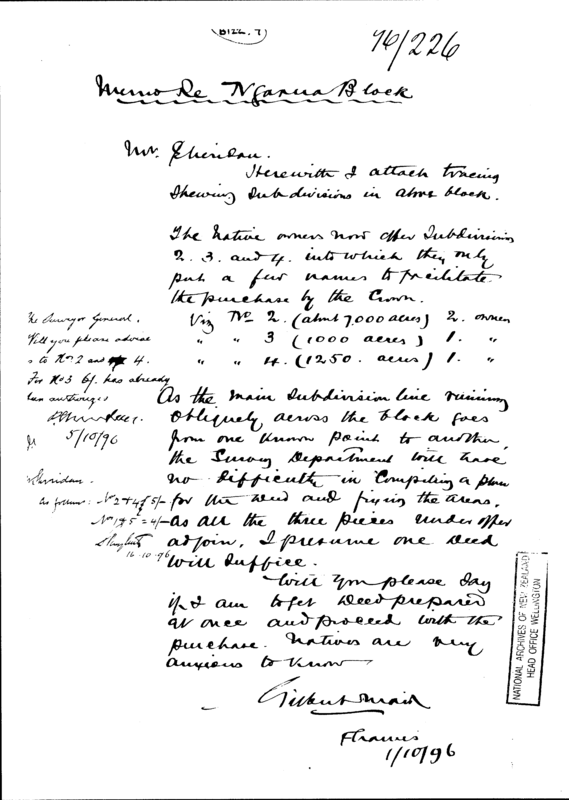 (B122. 7)
96/226
Memo Re Ngarua Block
Mr. Sheridan.
Herewith I attach tracing
Shewing Subdivisions in above block.
The Native owners now offer Subdivisions
2. 3. and 4. into which they only
put a few names to facilitate
the purchase by the Crown.
Viz No 2. (about 7,000 acres) 2. owners
" " 3 (1000 acres) 1. "
" " 4. (1250. acres) 1. "
The Surveyor General.
Will you please advise
as to No. 2 and 4.
For No 3 6/. has already
been authorized
5/10/96
As the main Subdivision line running
obliquely across the block goes
from one known point to another,
the Survey Department will have
no difficulty in Compiling a plan
for the Deed and fixing the areas.
as all the three pieces under offer
adjoin, I presume one Deed
will Suffice.
Sheridan.
as follows: No 2 & 4 5/-
No 1 & 5 = 4/-
16-10-96
Will you please Say
if I am to get Deed prepared
at once and proceed with the
purchase. Natives are very
anxious to know
Gilbert Mair
Thames
1/10/96
NATIONAL ARCHIVES OF NEW ZEALAND
HEAD OFFICE WELLINGTON